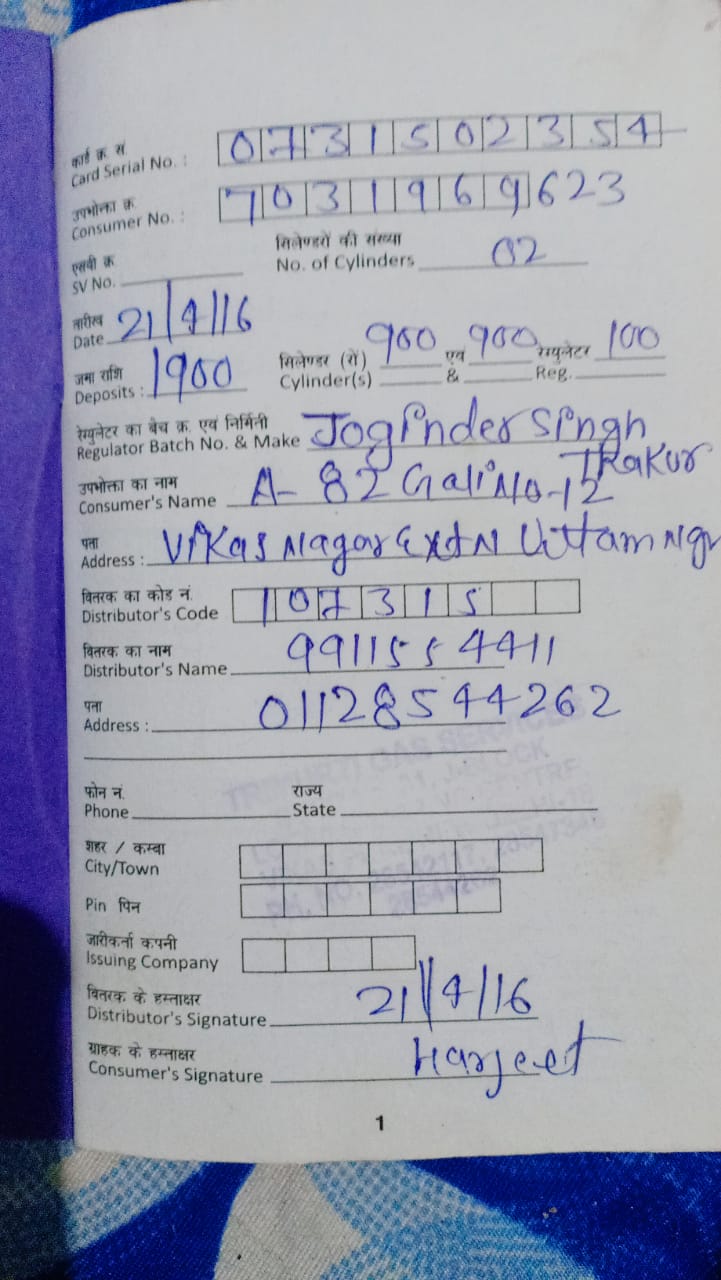 कार्ड क्र. सं.
Card Serial No. : 0731502354
उपभोक्ता क्र.
Consumer No. : 7031969623
एसवी क्र. सिलेण्डरों की संख्या
SV No. No. of Cylinders 02
तारीख
Date 21/4/16
जमा राशि सिलेण्डर (रों) 900 एवं 900 रेग्युलेटर 100
Deposits : 1900 Cylinder(s) & Reg.
रेग्युलेटर का बैच क्र. एवं निर्मिती
Regulator Batch No. & Make Joginder Singh
Thakur
उपभोक्ता का नाम
Consumer's Name A-82 Gali No-12
पता
Address : Vikas Nagar Extn Uttam Ngr
वितरक का कोड नं.
Distributor's Code 107315
वितरक का नाम
Distributor's Name 9911554411
पता
Address : 01128544262
फोन नं. राज्य
Phone State
शहर / कस्बा
City/Town
Pin पिन
जारीकर्ता कंपनी
Issuing Company
वितरक के हस्ताक्षर
Distributor's Signature 21/4/16
ग्राहक के हस्ताक्षर
Consumer's Signature Harjeet
1